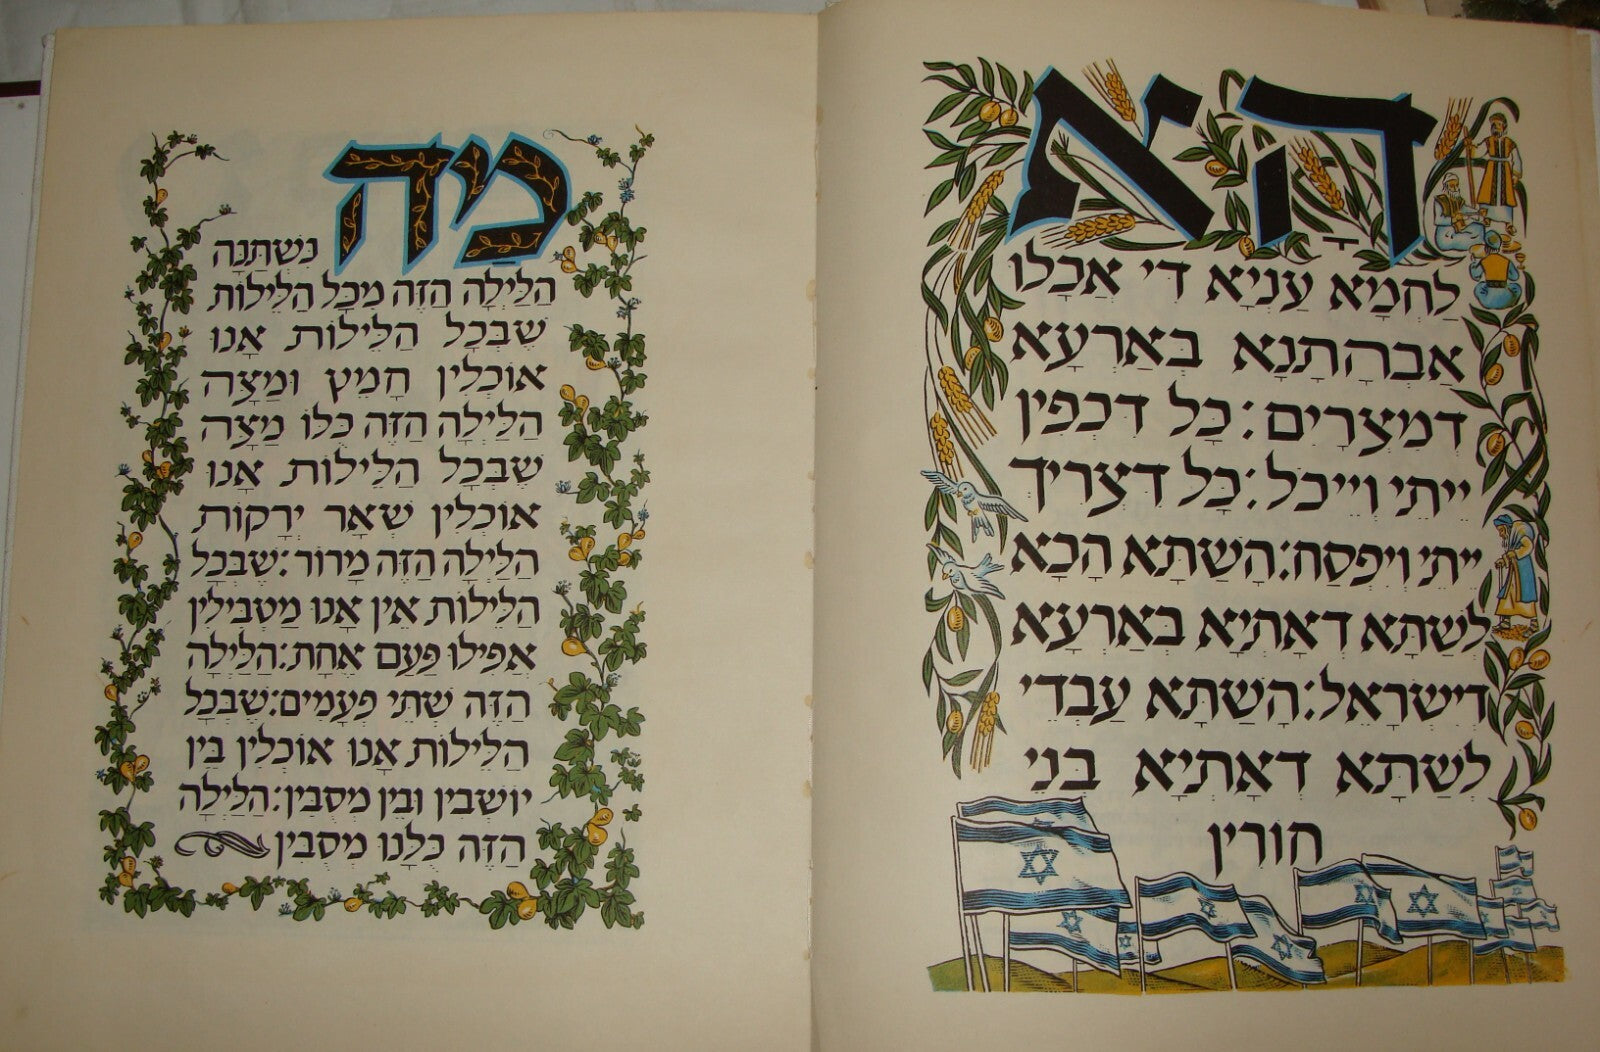 הָא
לַחְמָא עַנְיָא דִי אֲכָלוּ
אַבְהָתָנָא בְּאַרְעָא
דְמִצְרָיִם: כָּל דִּכְפִין
יֵיתֵי וְיֵיכֹל: כָּל דִּצְרִיךְ
יֵיתֵי וְיִפְסַח: הָשַׁתָּא הָכָא
לְשַׁתָּא דְאָתְיָא בְּאַרְעָא
דְיִשְׂרָאֵל: הָשַׁתָּא עַבְדֵי
לְשַׁתָּא דְאָתְיָא בְּנֵי
חוֹרִין
מַה
נִּשְׁתַּנָּה
הַלַּיְלָה הַזֶּה מִכָּל הַלֵּילוֹת
שֶׁבְּכָל הַלֵּילוֹת אָנוּ
אוֹכְלִין חָמֵץ וּמַצָּה
הַלַּיְלָה הַזֶּה כֻּלּוֹ מַצָּה
שֶׁבְּכָל הַלֵּילוֹת אָנוּ
אוֹכְלִין שְׁאָר יְרָקוֹת
הַלַּיְלָה הַזֶּה מָרוֹר: שֶׁבְּכָל
הַלֵּילוֹת אֵין אָנוּ מַטְבִּילִין
אֲפִילוּ פַּעַם אֶחָת: הַלַּיְלָה
הַזֶּה שְׁתֵּי פְעָמִים: שֶׁבְּכָל
הַלֵּילוֹת אָנוּ אוֹכְלִין בֵּין
יוֹשְׁבִין וּבֵין מְסֻבִּין: הַלַּיְלָה
הַזֶּה כֻּלָּנוּ מְסֻבִּין